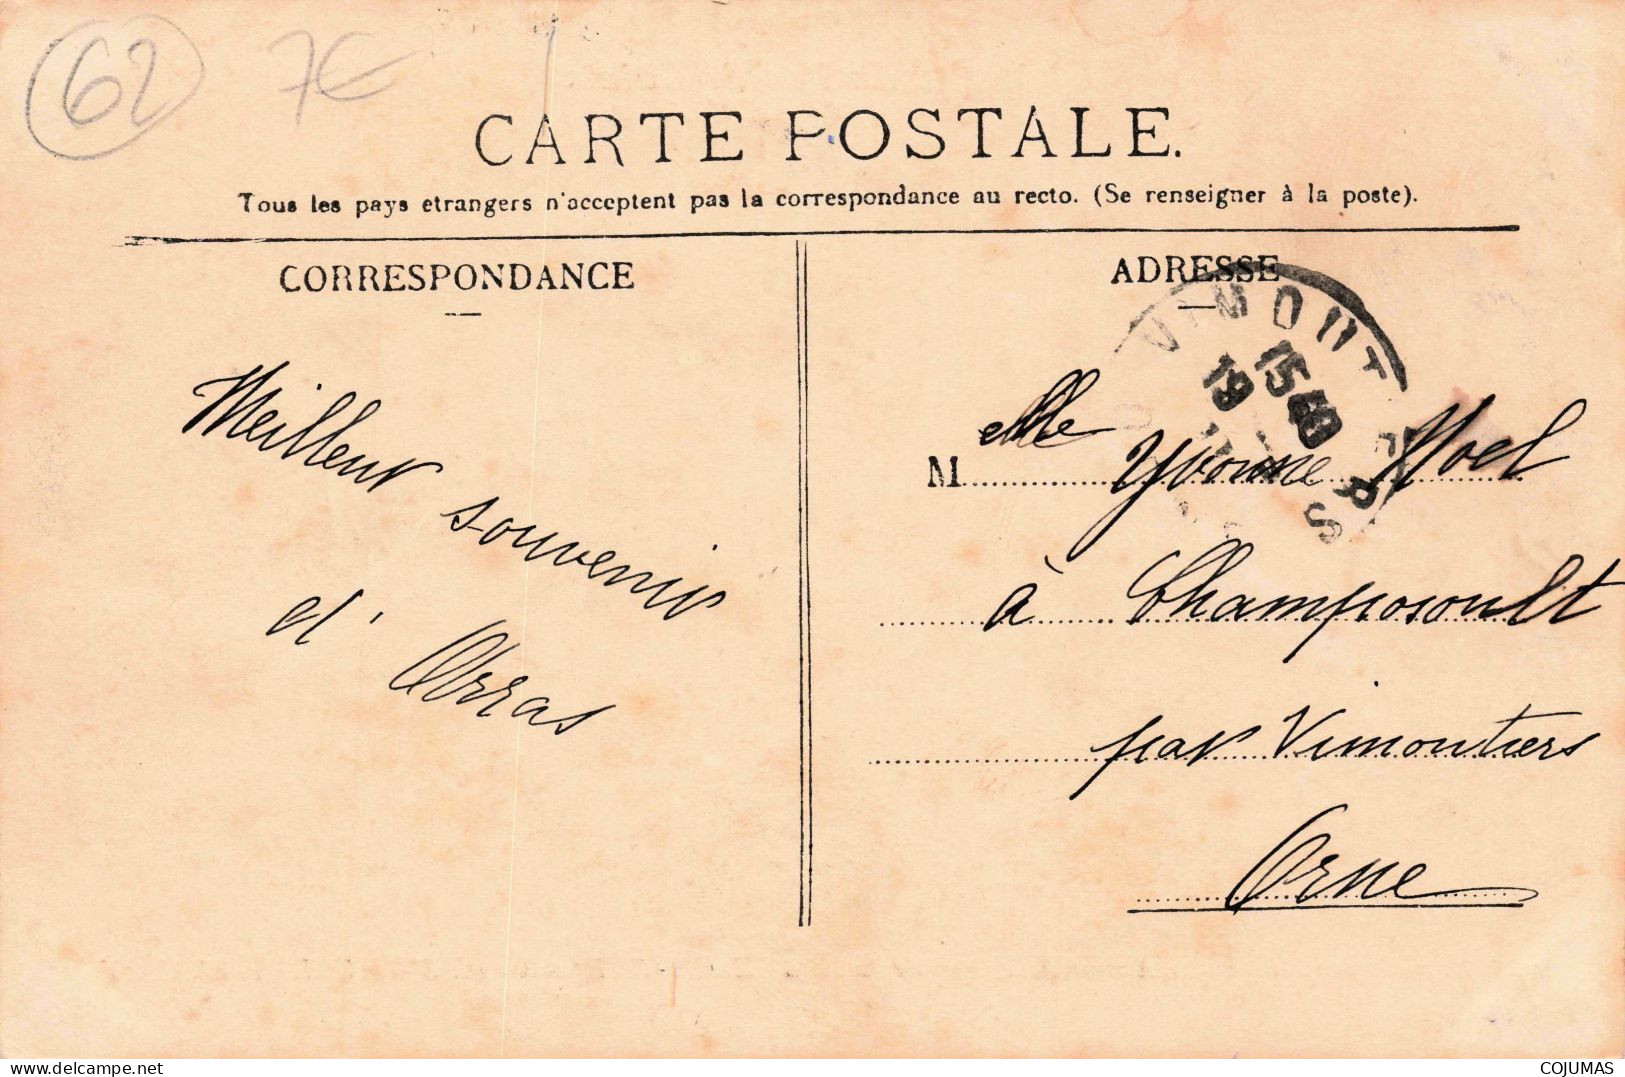 62 7€
CARTE POSTALE.
Tous les pays etrangers n'acceptent pas la correspondance au recto. (Se renseigner à la poste).
CORRESPONDANCE
Meilleur souvenir
d'Arras
ADRESSE
VIMOUTIERS
15 40
19
Melle Yvonne Noel
à Champosoult
par Vimoutiers
Orne
COJUMAS